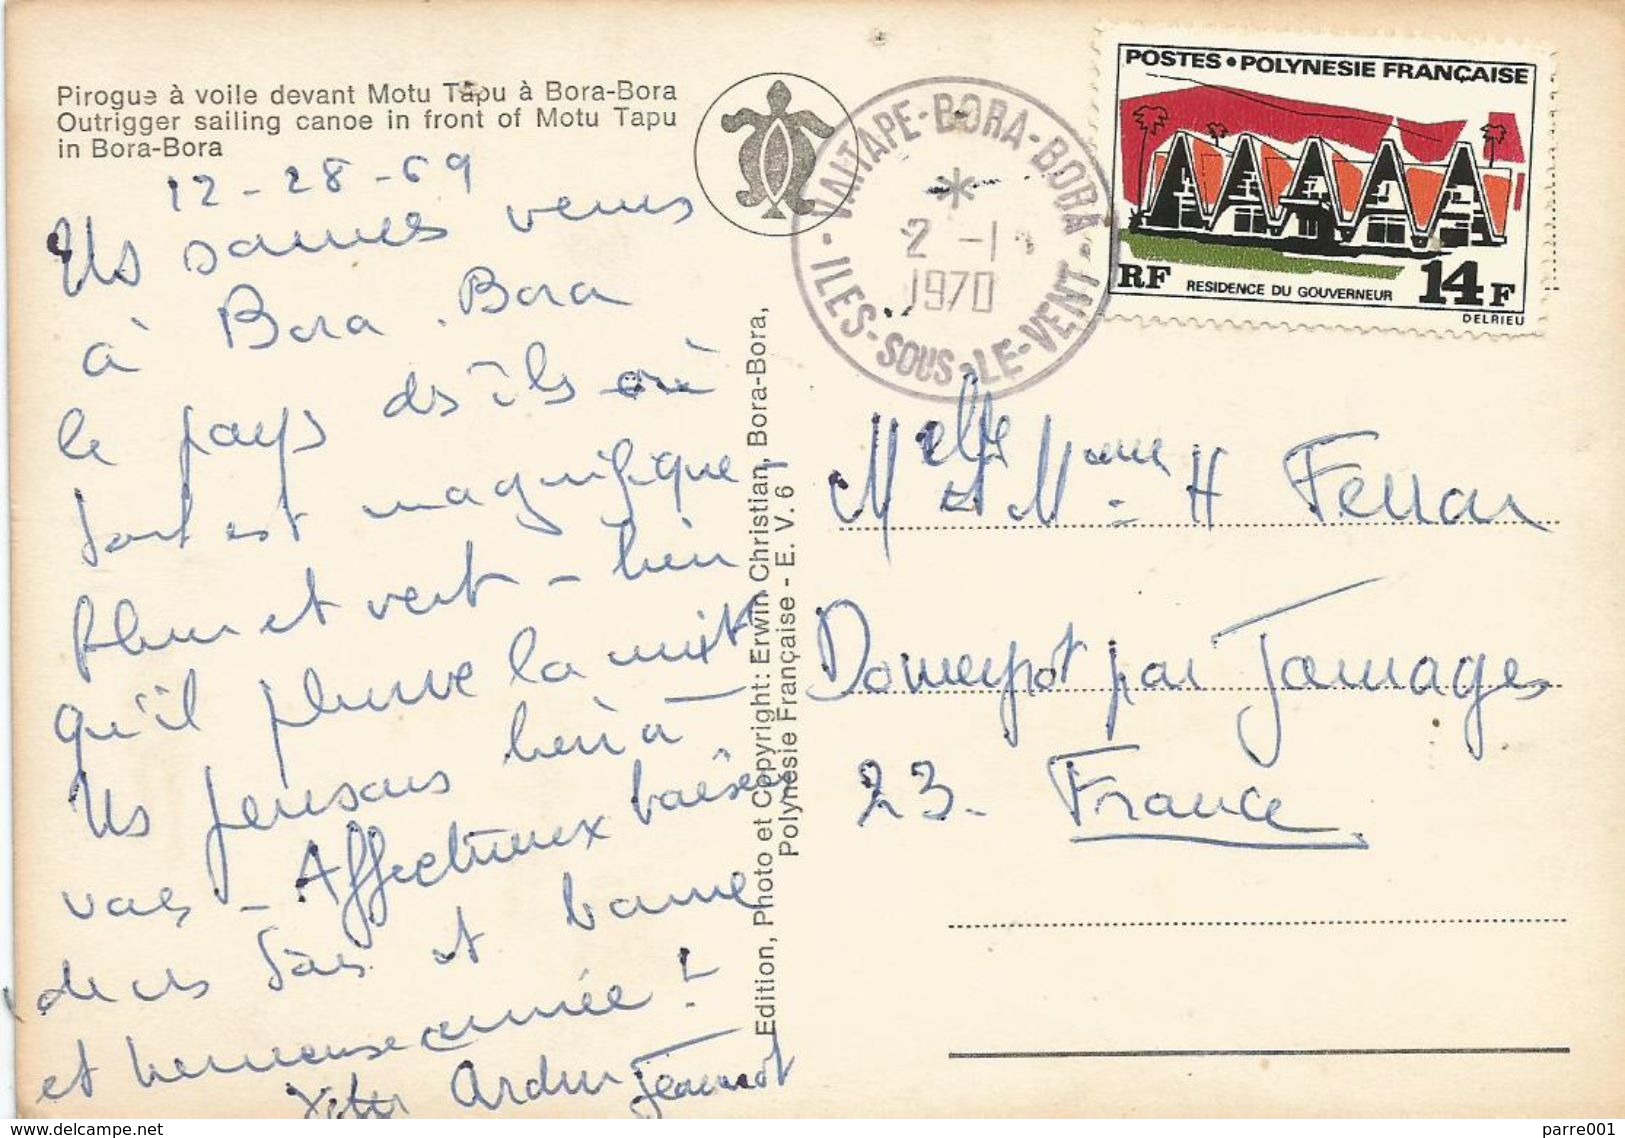 Pirogue à voile devant Motu Tapu à Bora-Bora
Outrigger sailing canoe in front of Motu Tapu
in Bora-Bora
12-28-69
Ns sommes venus
à Bora.Bora
le pays des îles où
tout est magnifique -
fleuri et vert - bien
qu'il pleuve la nuit
Ns pensons bien à
vous - Affectueux baisers
de ns tous et bonne
et heureuse année !
Jeannot
Edition, Photo et Copyright: Erwin Christian, Bora-Bora,
Polynésie Française - E. V. 6
VAITAPE-BORA-BORA
*
2 -1
1970
ILES-SOUS-LE-VENT
POSTES • POLYNESIE FRANÇAISE
RF RESIDENCE DU GOUVERNEUR 14F
DELRIEU
Melle et Mme H Ferrar
Domeyrot par Jarnages
23 - France
delcampe.net
parre001